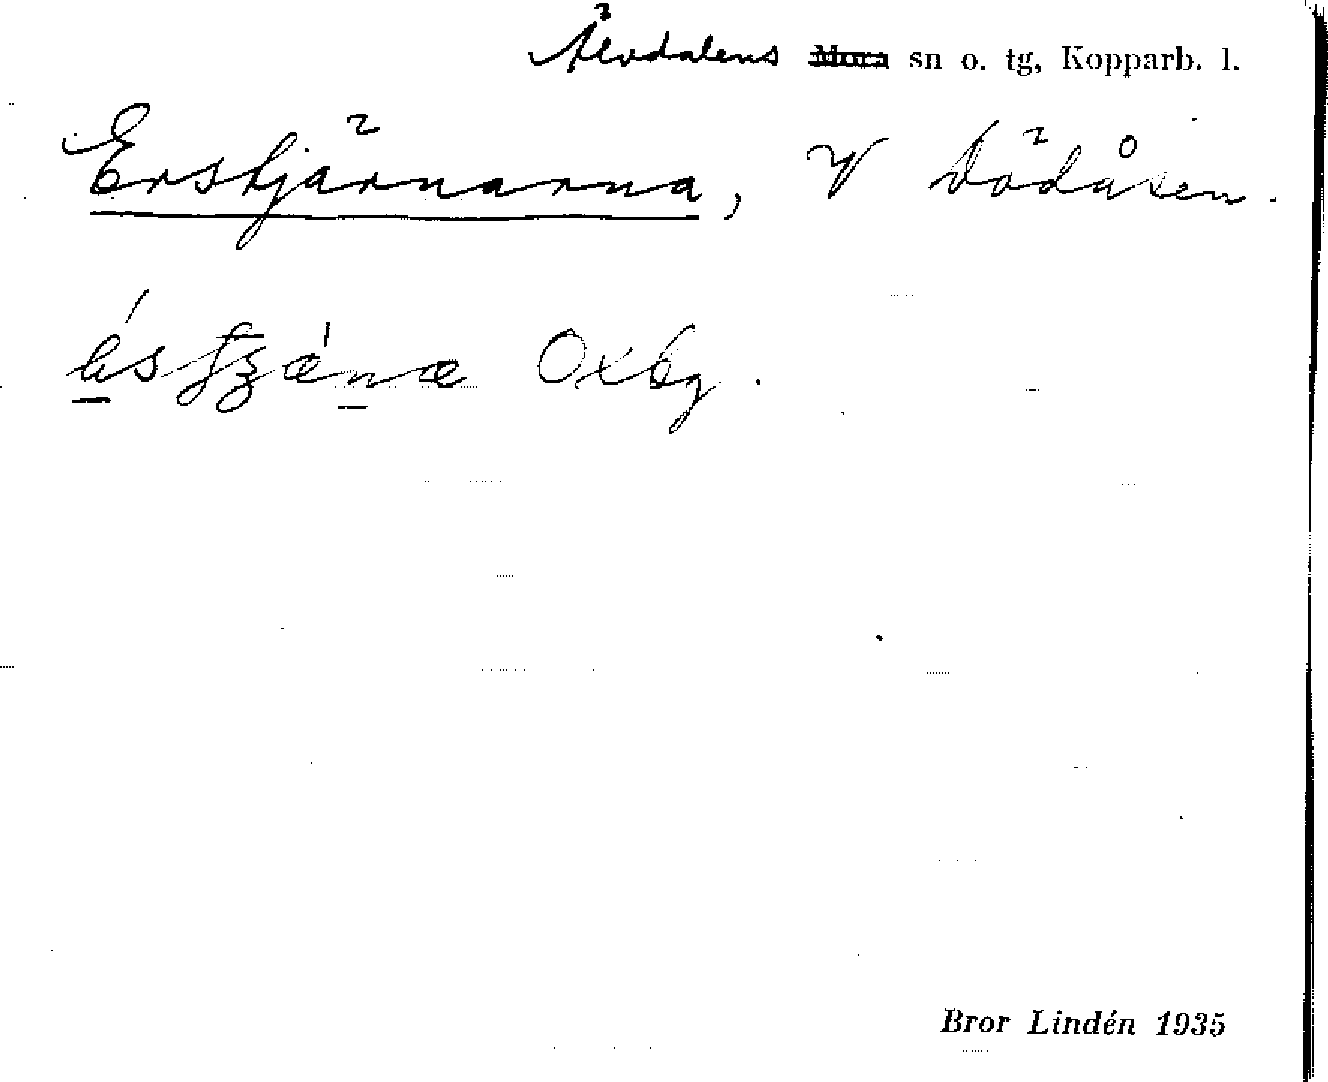 Älvdalens ~~Mora~~ sn o. tg, Kopparb. l.
Erstjärnarna, V Dödåsen.
Oxbg.
Bror Lindén 1935